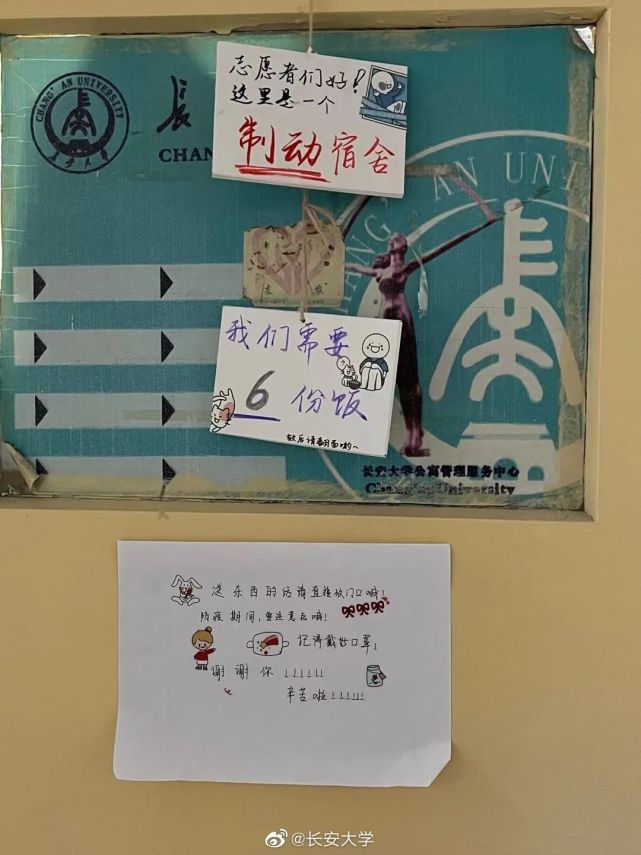 CHANG'AN UNIVERSITY
长安大学
长
CHAN
志愿者们好!
这里是一个
制动宿舍
ANG' AN UNI
我们需要
6 份饭
敲后请翻面哟~
长安大学公寓管理服务中心
Chang'an University
送东西的话请直接放门口哦!
防疫期间,要注意点嘛!
记得戴好口罩!
谢谢你!!!!!!
辛苦啦!!!!!!
@长安大学